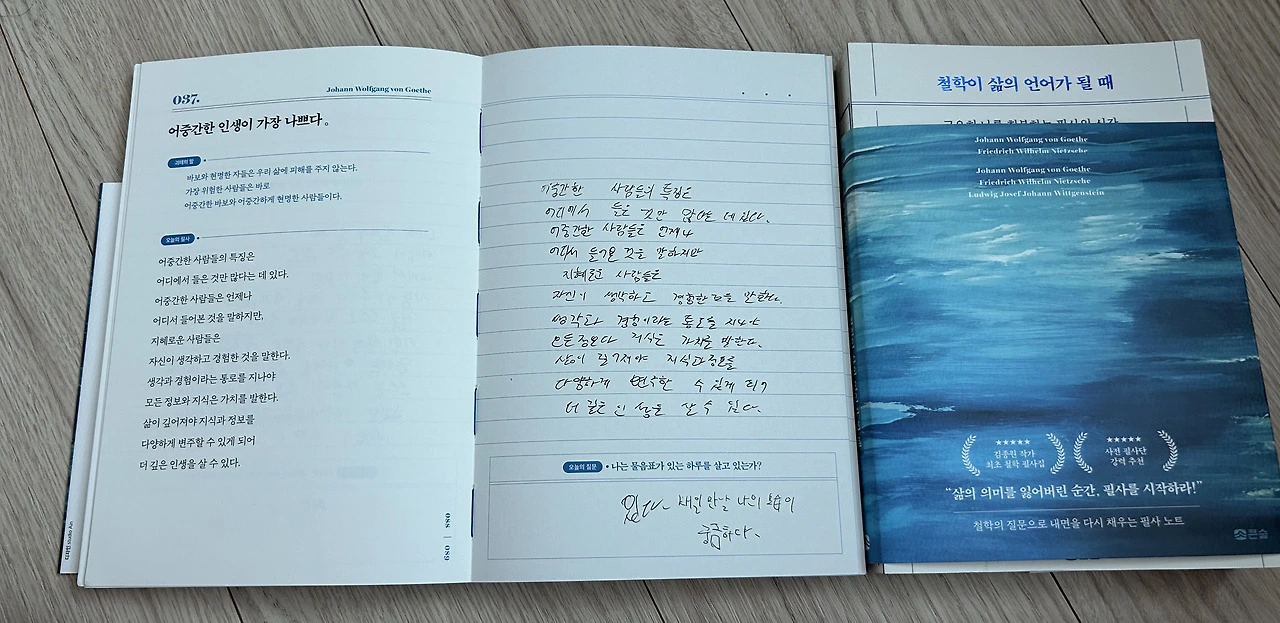 037.
Johann Wolfgang von Goethe
어중간한 인생이 가장 나쁘다.
괴테의 말
바보와 현명한 자들은 우리 삶에 피해를 주지 않는다.
가장 위험한 사람들은 바로
어중간한 바보와 어중간하게 현명한 사람들이다.
오늘의 필사
어중간한 사람들의 특징은
어디에서 들은 것만 많다는 데 있다.
어중간한 사람들은 언제나
어디서 들어본 것을 말하지만,
지혜로운 사람들은
자신이 생각하고 경험한 것을 말한다.
생각과 경험이라는 통로를 지나야
모든 정보와 지식은 가치를 발한다.
삶이 깊어져야 지식과 정보를
다양하게 변주할 수 있게 되어
더 깊은 인생을 살 수 있다.
088 | 089
어중간한 사람들의 특징은
어디에서 들은 것만 많다는 데 있다.
어중간한 사람들은 언제나
어디서 들어본 것을 말하지만
지혜로운 사람들은
자신이 생각하고 경험한 것을 말한다.
생각과 경험이라는 통로를 지나야
모든 정보와 지식은 가치를 발한다.
삶이 깊어져야 지식과 정보를
다양하게 변주할 수 있게 되어
더 깊은 인생을 살 수 있다.
오늘의 질문
나는 물음표가 있는 하루를 살고 있는가?
있다. 매일 만날 나의 모습이
궁금하다.
철학이 삶의 언어가 될 때
Johann Wolfgang von Goethe
Friedrich Wilhelm Nietzsche
Johann Wolfgang von Goethe
Friedrich Wilhelm Nietzsche
Ludwig Josef Johann Wittgenstein
김종원 작가
최초 철학 필사집
사전 필사단
강력 추천
“삶의 의미를 잃어버린 순간, 필사를 시작하라!”
철학의 질문으로 내면을 다시 채우는 필사 노트
큰숲